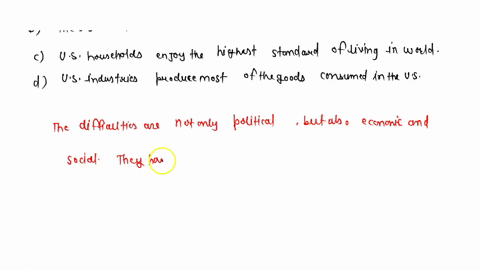 c) U.S. households enjoy the highest standard of living in world.
d) U.S. Industries produce most of the goods consumed in the U.S.
The diffralties are not only political , but also economic and
social. They has